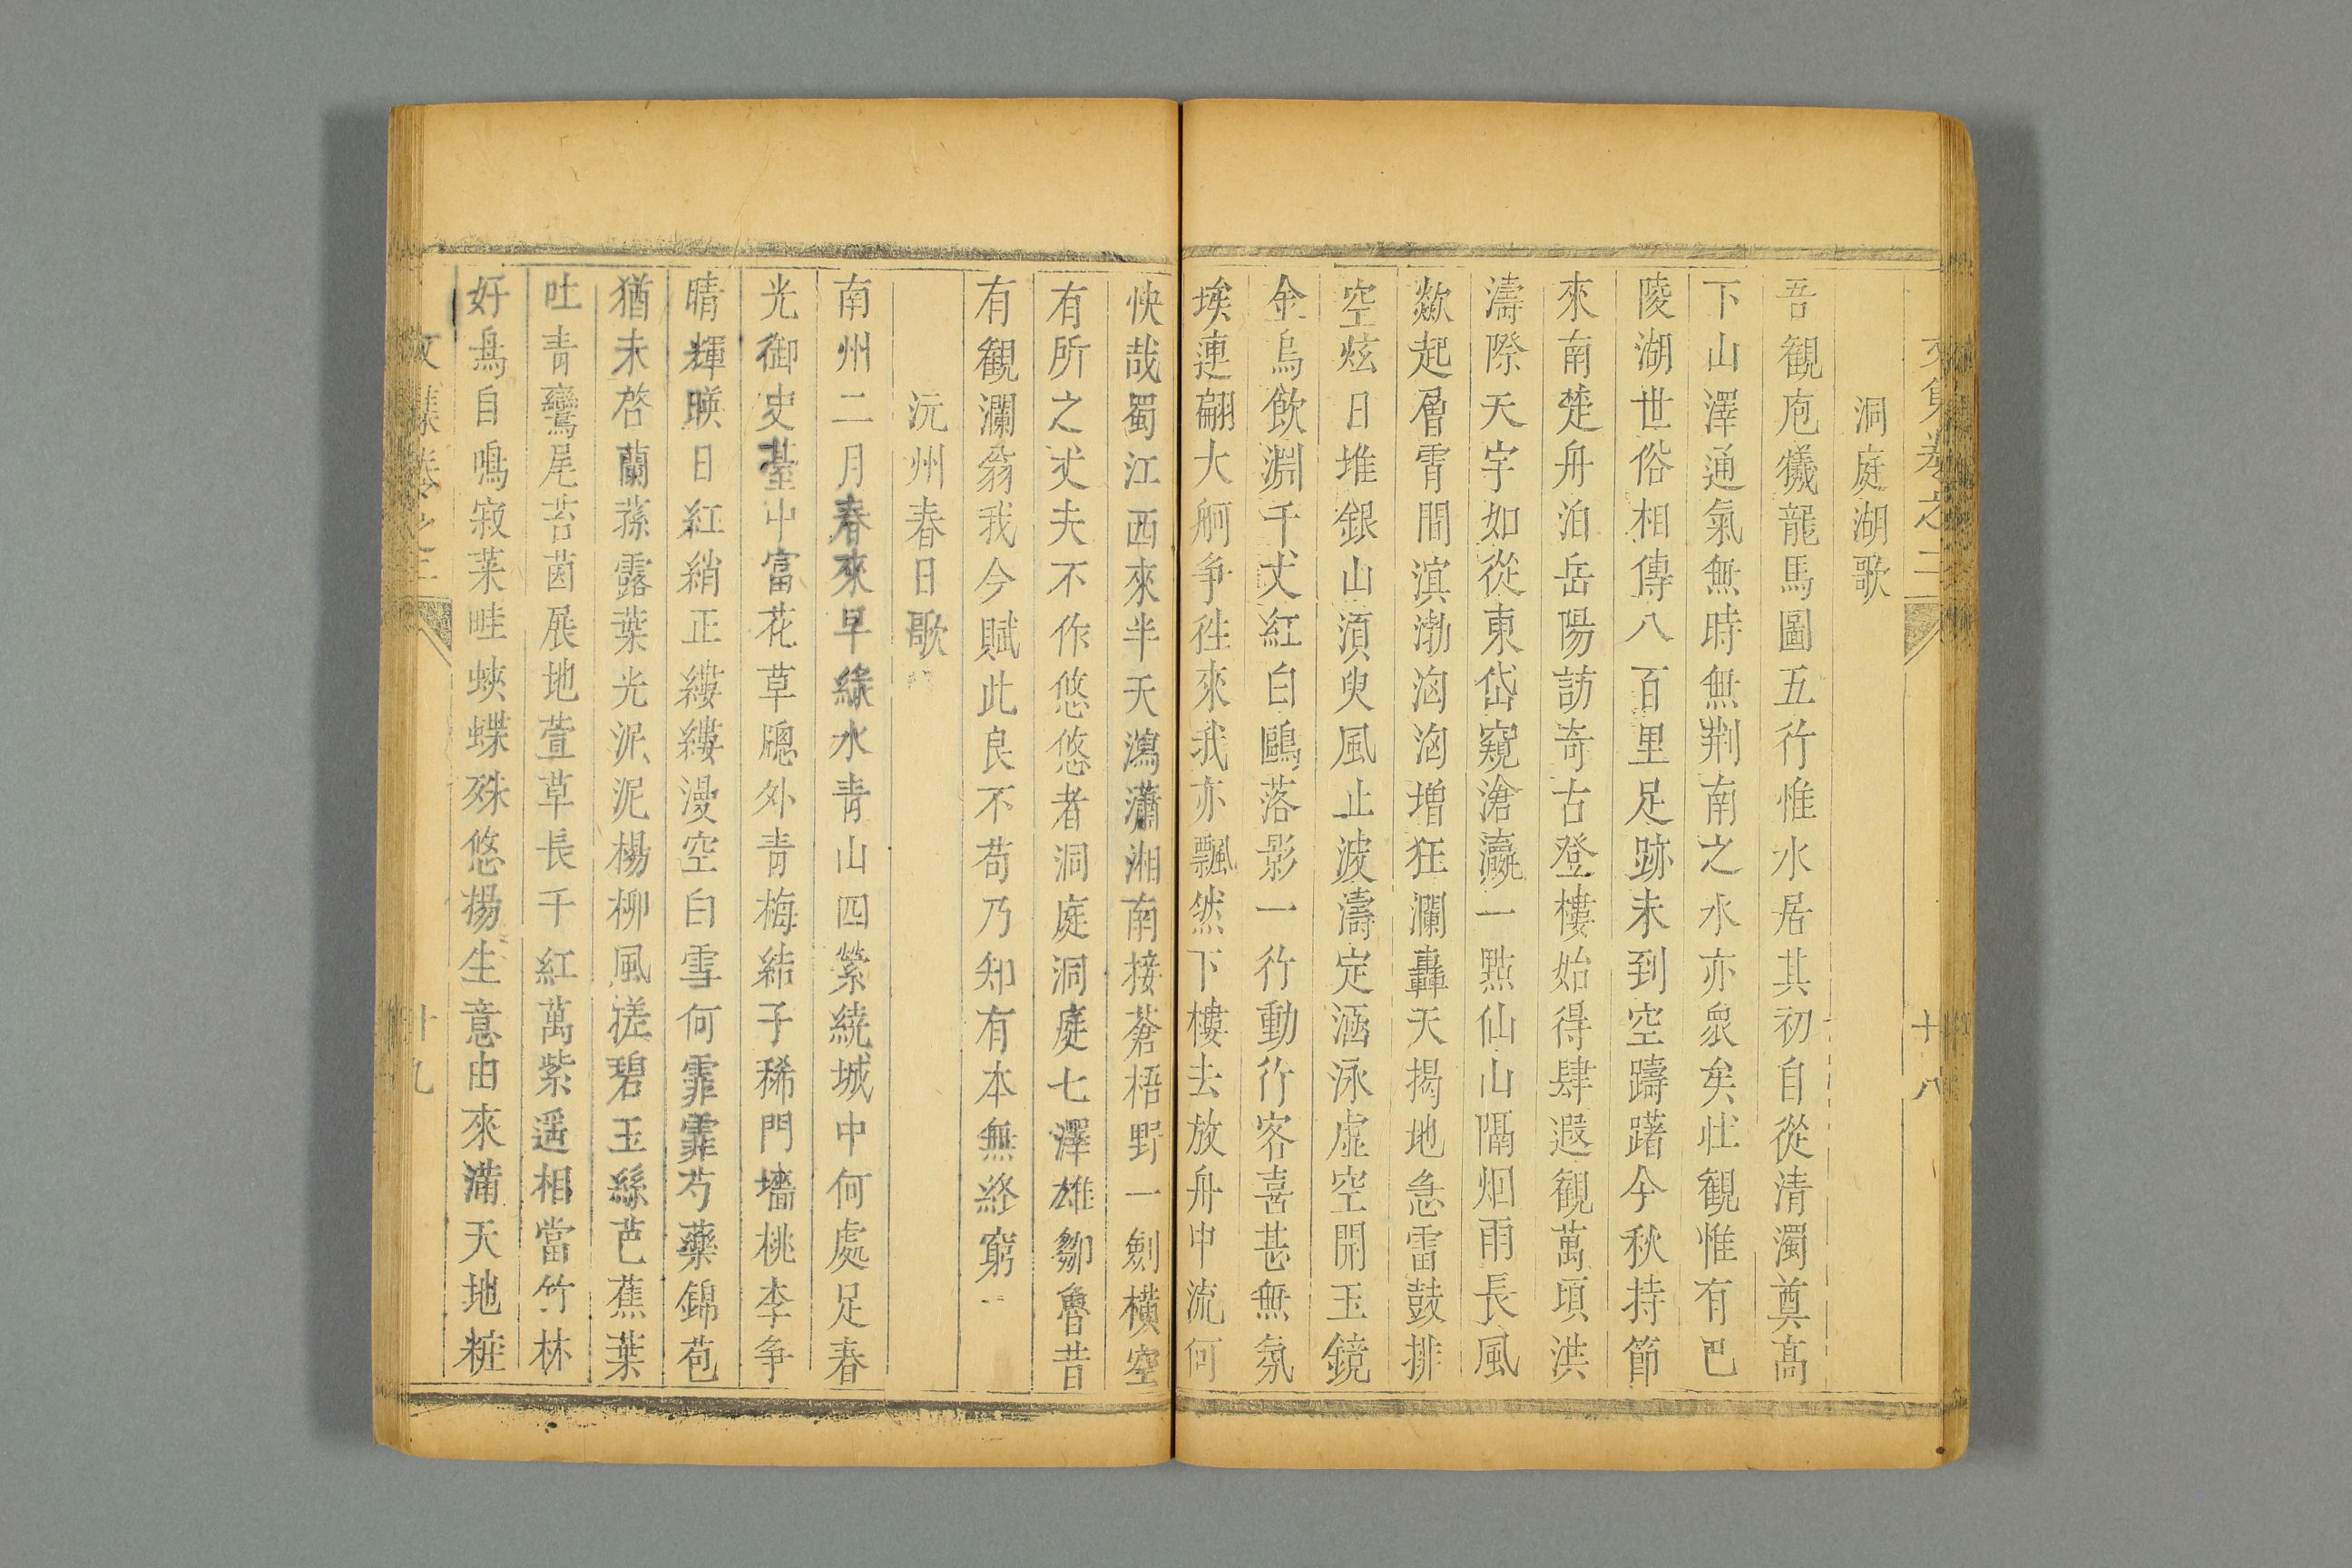 洞庭湖歌
吾觀庖犧龍馬圖五行惟水居其初自從清濁奠髙
下山澤通氣無時無荆南之水亦衆矣壮觀惟有巴
陵湖世俗相傳八百里足跡未到空躊躇今秋持節
來南楚舟泊岳陽訪奇古登樓始得肆遐觀萬頃洪
濤際天宇如從東岱窺滄瀛一㸃仙山隔烟雨長風
歘起層霄間溟渤洶洶增狂瀾轟天揭地急雷鼓排
空炫日堆銀山湏臾風止波濤定涵泳虚空開玉鏡
金烏飲淵千丈紅白鷗落影一行動行客喜甚無氛
埃連翩大舸争徃來我亦飄然下樓去放舟中流何
快哉蜀江西來半天瀉瀟湘南接蒼梧野一劍橫空
有所之丈夫不作悠悠者洞庭洞庭七澤雄鄒魯昔
有觀瀾翁我今賦此良不苟乃知有本無終窮
沅州春日歌
南州二月春來早緑水青山四縈繞城中何處足春
光御史臺中富花草牕外青梅結子稀門墻桃李争
晴輝暎日紅綃正縷縷漫空白雪何霏霏芍藥錦苞
猶未啓蘭蓀露葉光泥泥楊柳風搓碧玉絲芭蕉葉
吐青鸞尾苔茵展地萱草長千紅萬紫遥相當竹林
好鳥自鳴寂菜畦蛺蝶殊悠揚生意由來滿天地粧
文集卷之二
十八
十九